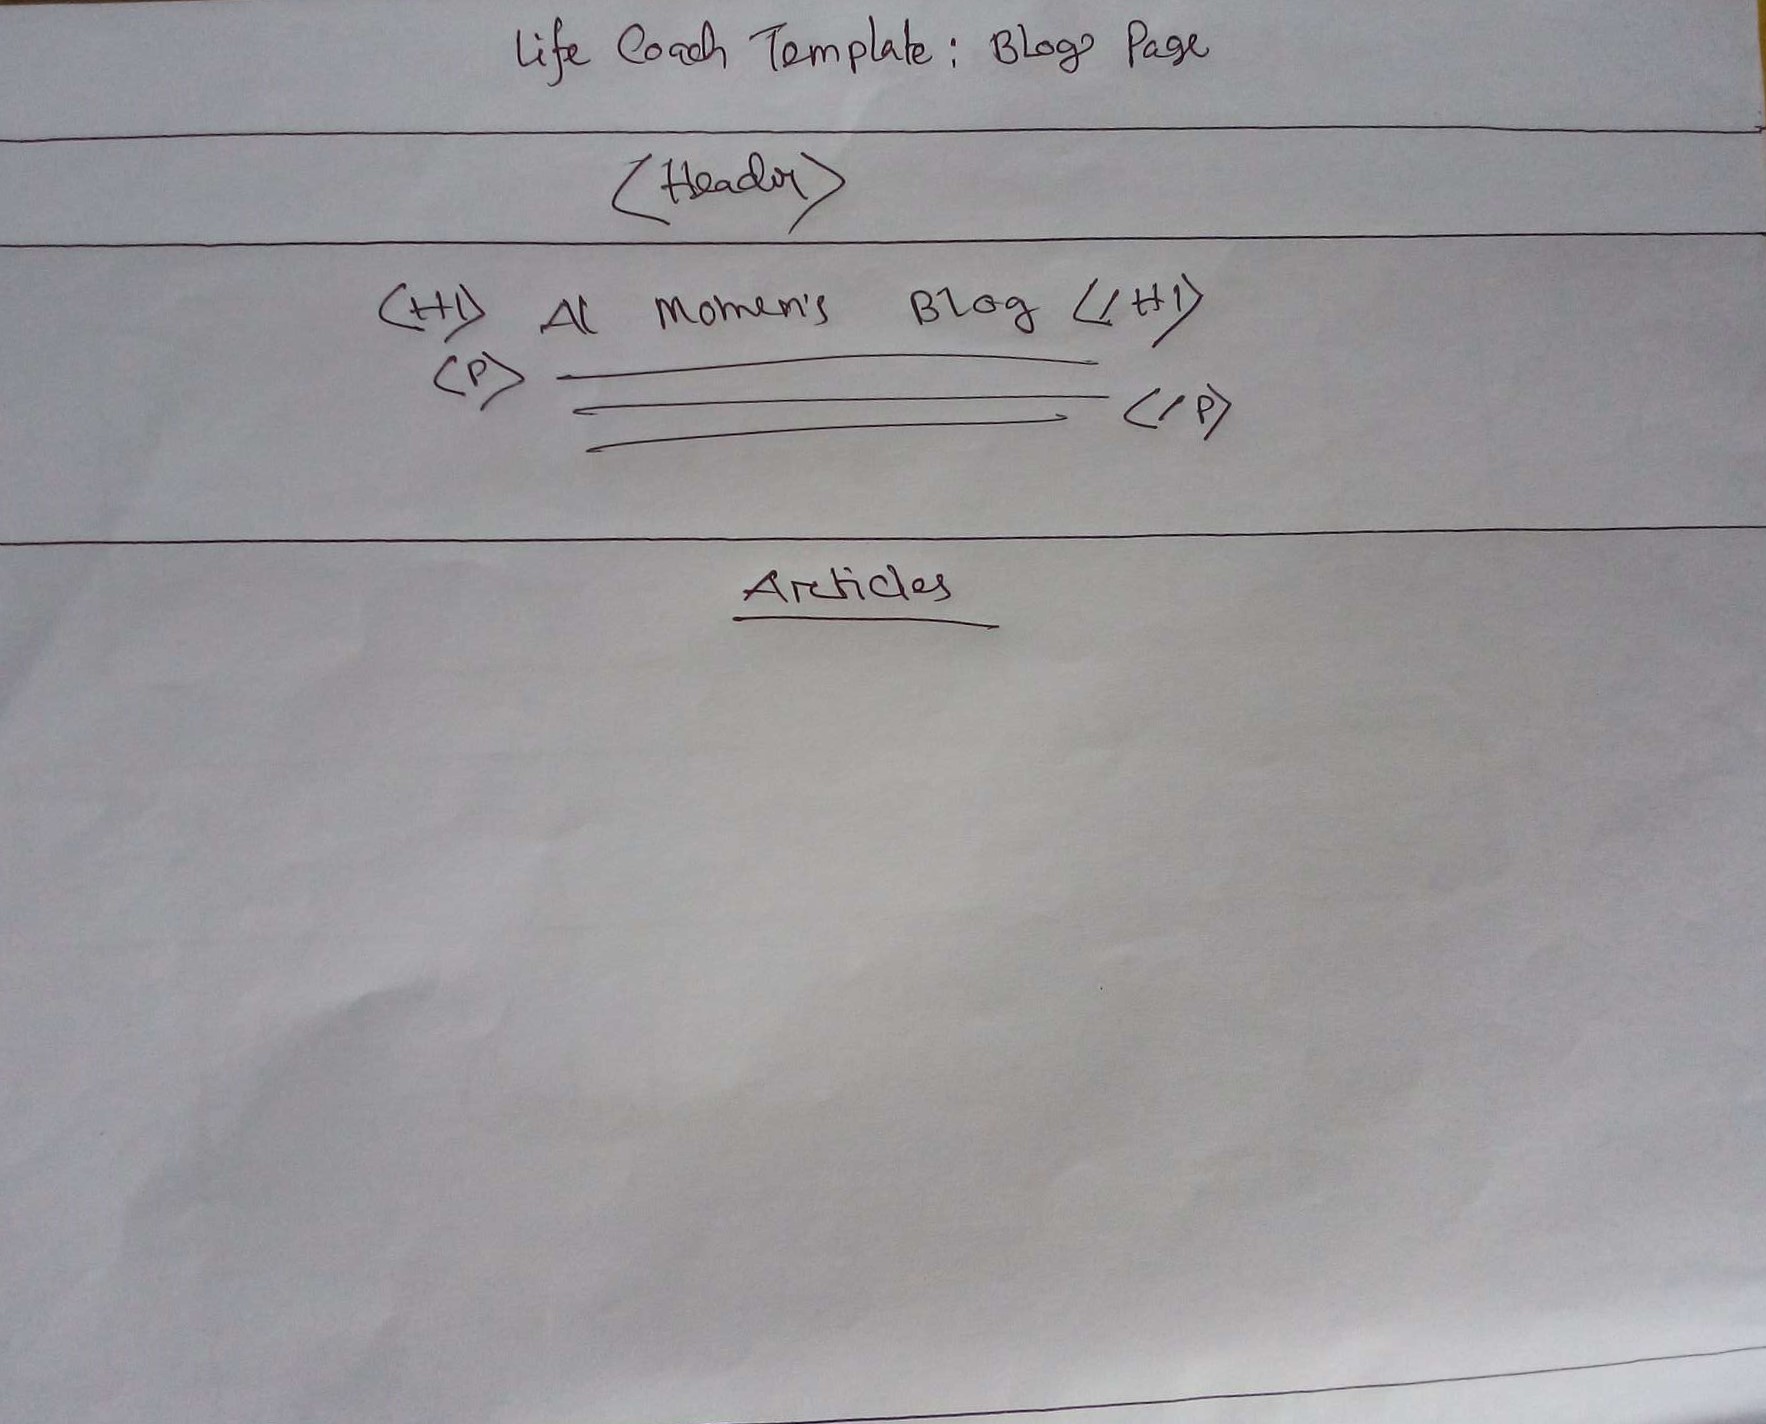 Life Coach Template: Blogs Page
<Header>
<H1> Al Momen's Blog </H1>
<P>
</P>
Articles